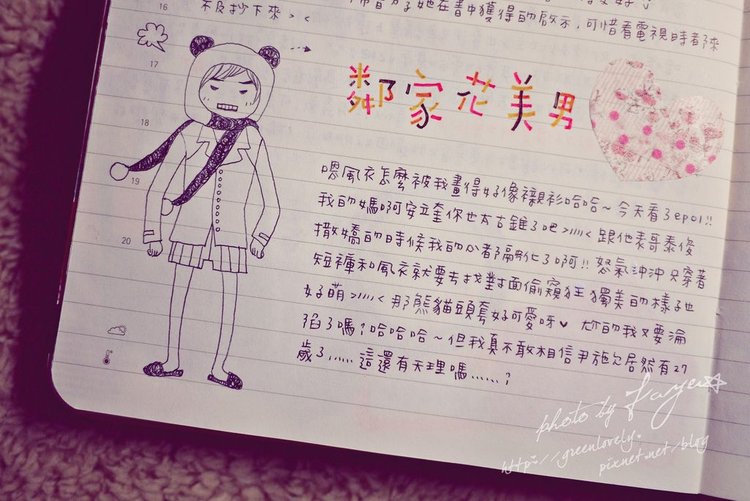 不及抄下來><
她在書中獲得的啟示,可惜看電視時都來
16
17
18
19
20
鄰家花美男
嗯風衣怎麼被我畫得好像襯衫哈哈~今天看了ep01!!
我的媽啊安立奎你也太古錐了吧>///<跟他表哥泰俊
撒嬌的時候我的心都融化了啊!!怒氣沖沖只穿著
短褲和風衣就要去找對面偷窺狂獨美的樣子也
好萌>///<那熊貓頭套好可愛呀♥尬的我又要淪
陷了嗎?哈哈哈~但我真不敢相信尹施允居然有27
歲了......這還有天理嗎......?
photo by Kaye☆
http://greenlovely.
pixnet.net/blog